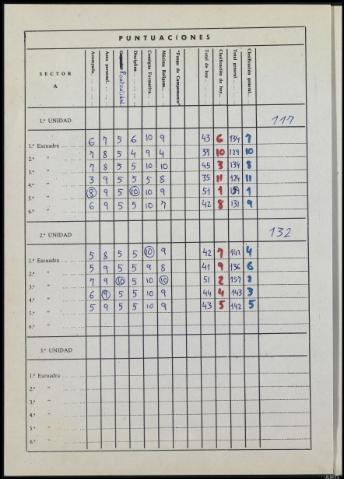 PUNTUACIONES
SECTOR
A
Acampada
Aseo personal
Puntualidad
Disciplina
Consigna Formativa
"Fuego de Campamento"
Total de hoy
Clasificación de hoy
Total general
Clasificación general
1.ª UNIDAD 117
1.ª Escuadra 6 7 5 6 10 9 43 6 134 7
2.ª " 7 8 5 4 9 4 39 10 129 10
3.ª " 7 8 5 5 10 10 45 3 134 8
4.ª " 3 9 5 5 5 8 35 11 124 11
5.ª " 8 9 5 10 10 9 51 1 1
6.ª " 6 9 5 5 10 7 42 8 131 9
2.ª UNIDAD 132
1.ª Escuadra 5 8 5 5 10 9 42 7 4
2.ª " 5 9 5 5 9 8 41 9 136 6
3.ª " 7 9 10 5 10 10 51 2 2
4.ª " 6 9 5 5 10 9 44 4 143 3
5.ª " 5 9 5 5 10 9 43 5 142 5
6.ª "
3.ª UNIDAD
1.ª Escuadra
2.ª "
3.ª "
4.ª "
5.ª "
6.ª "